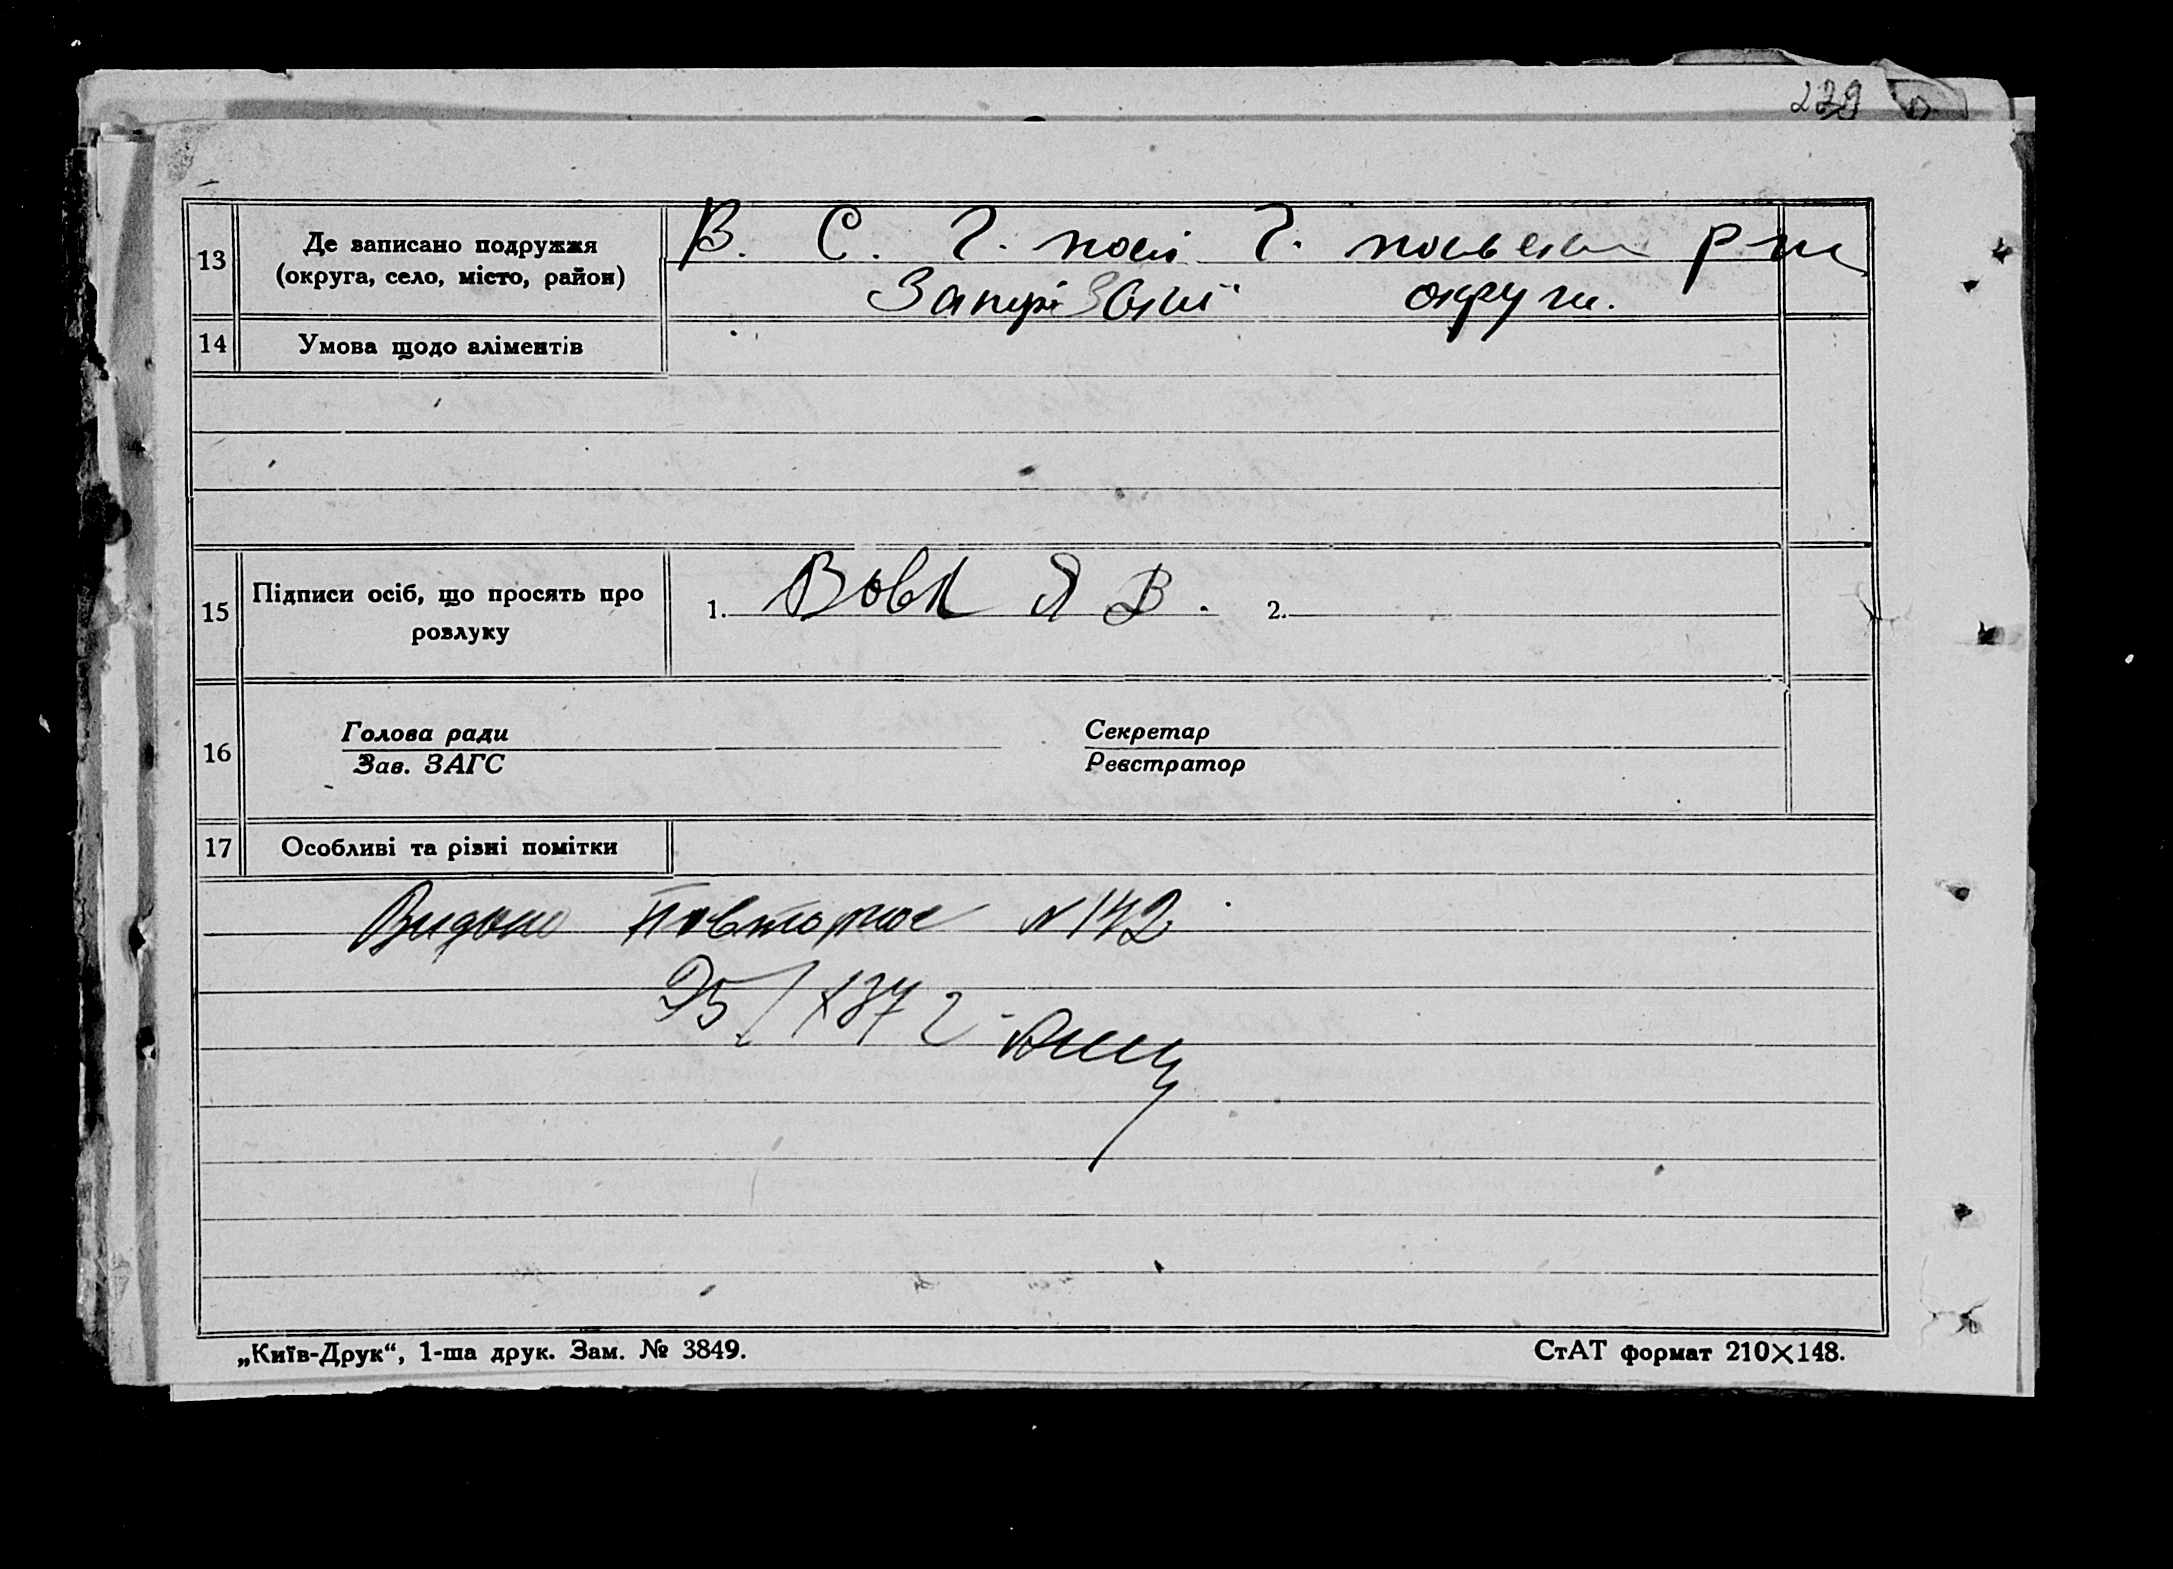 239
13 Де записано подружжя В. С. Г. полі Г. польськ р-ну
(округа, село, місто, район) Запорізької округи.
14 Умова щодо аліментів
15 Підписи осіб, що просять про розлуку 1. Вовк Я В. 2.
16 Голова ради Секретар
Зав. ЗАГС Реєстратор
17 Особливі та різні помітки
Видано Повторное N 142
25/X 37 г.
„Київ-Друк“, 1-ша друк. Зам. № 3849. СтАТ формат 210×148.